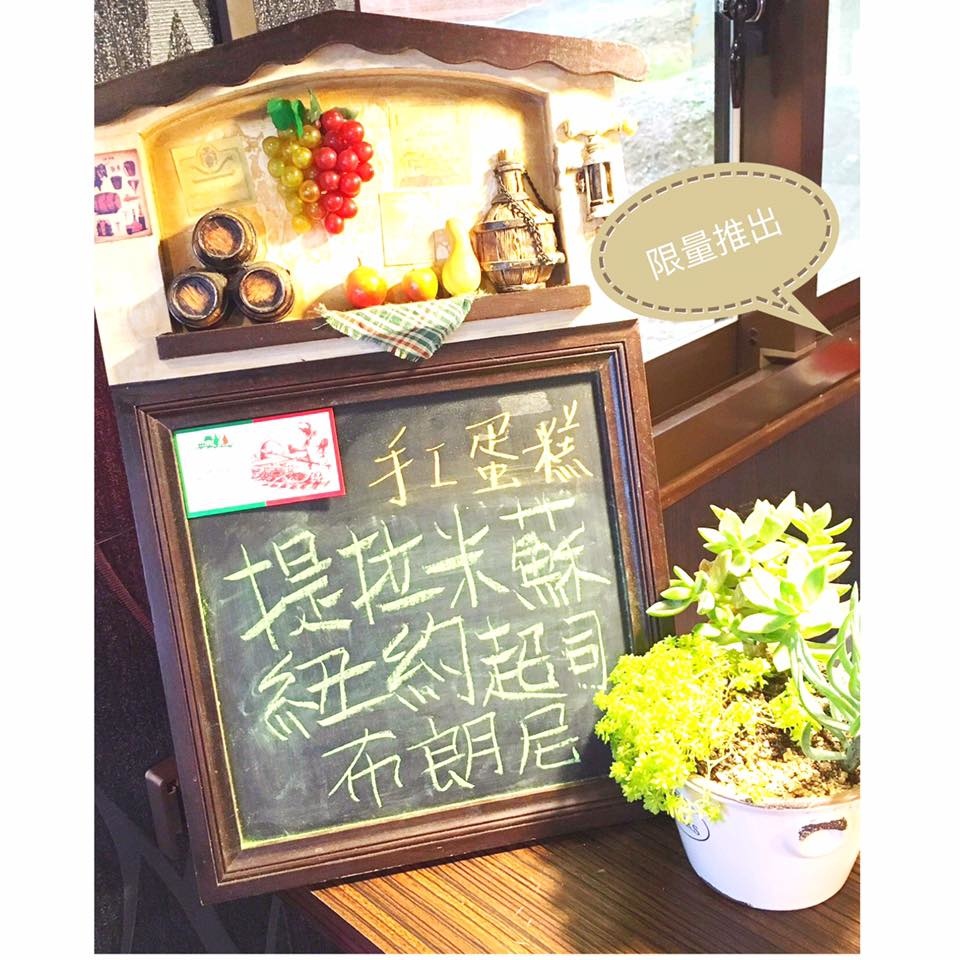 限量推出
手工蛋糕
提拉米蘇
紐約起司
布朗尼